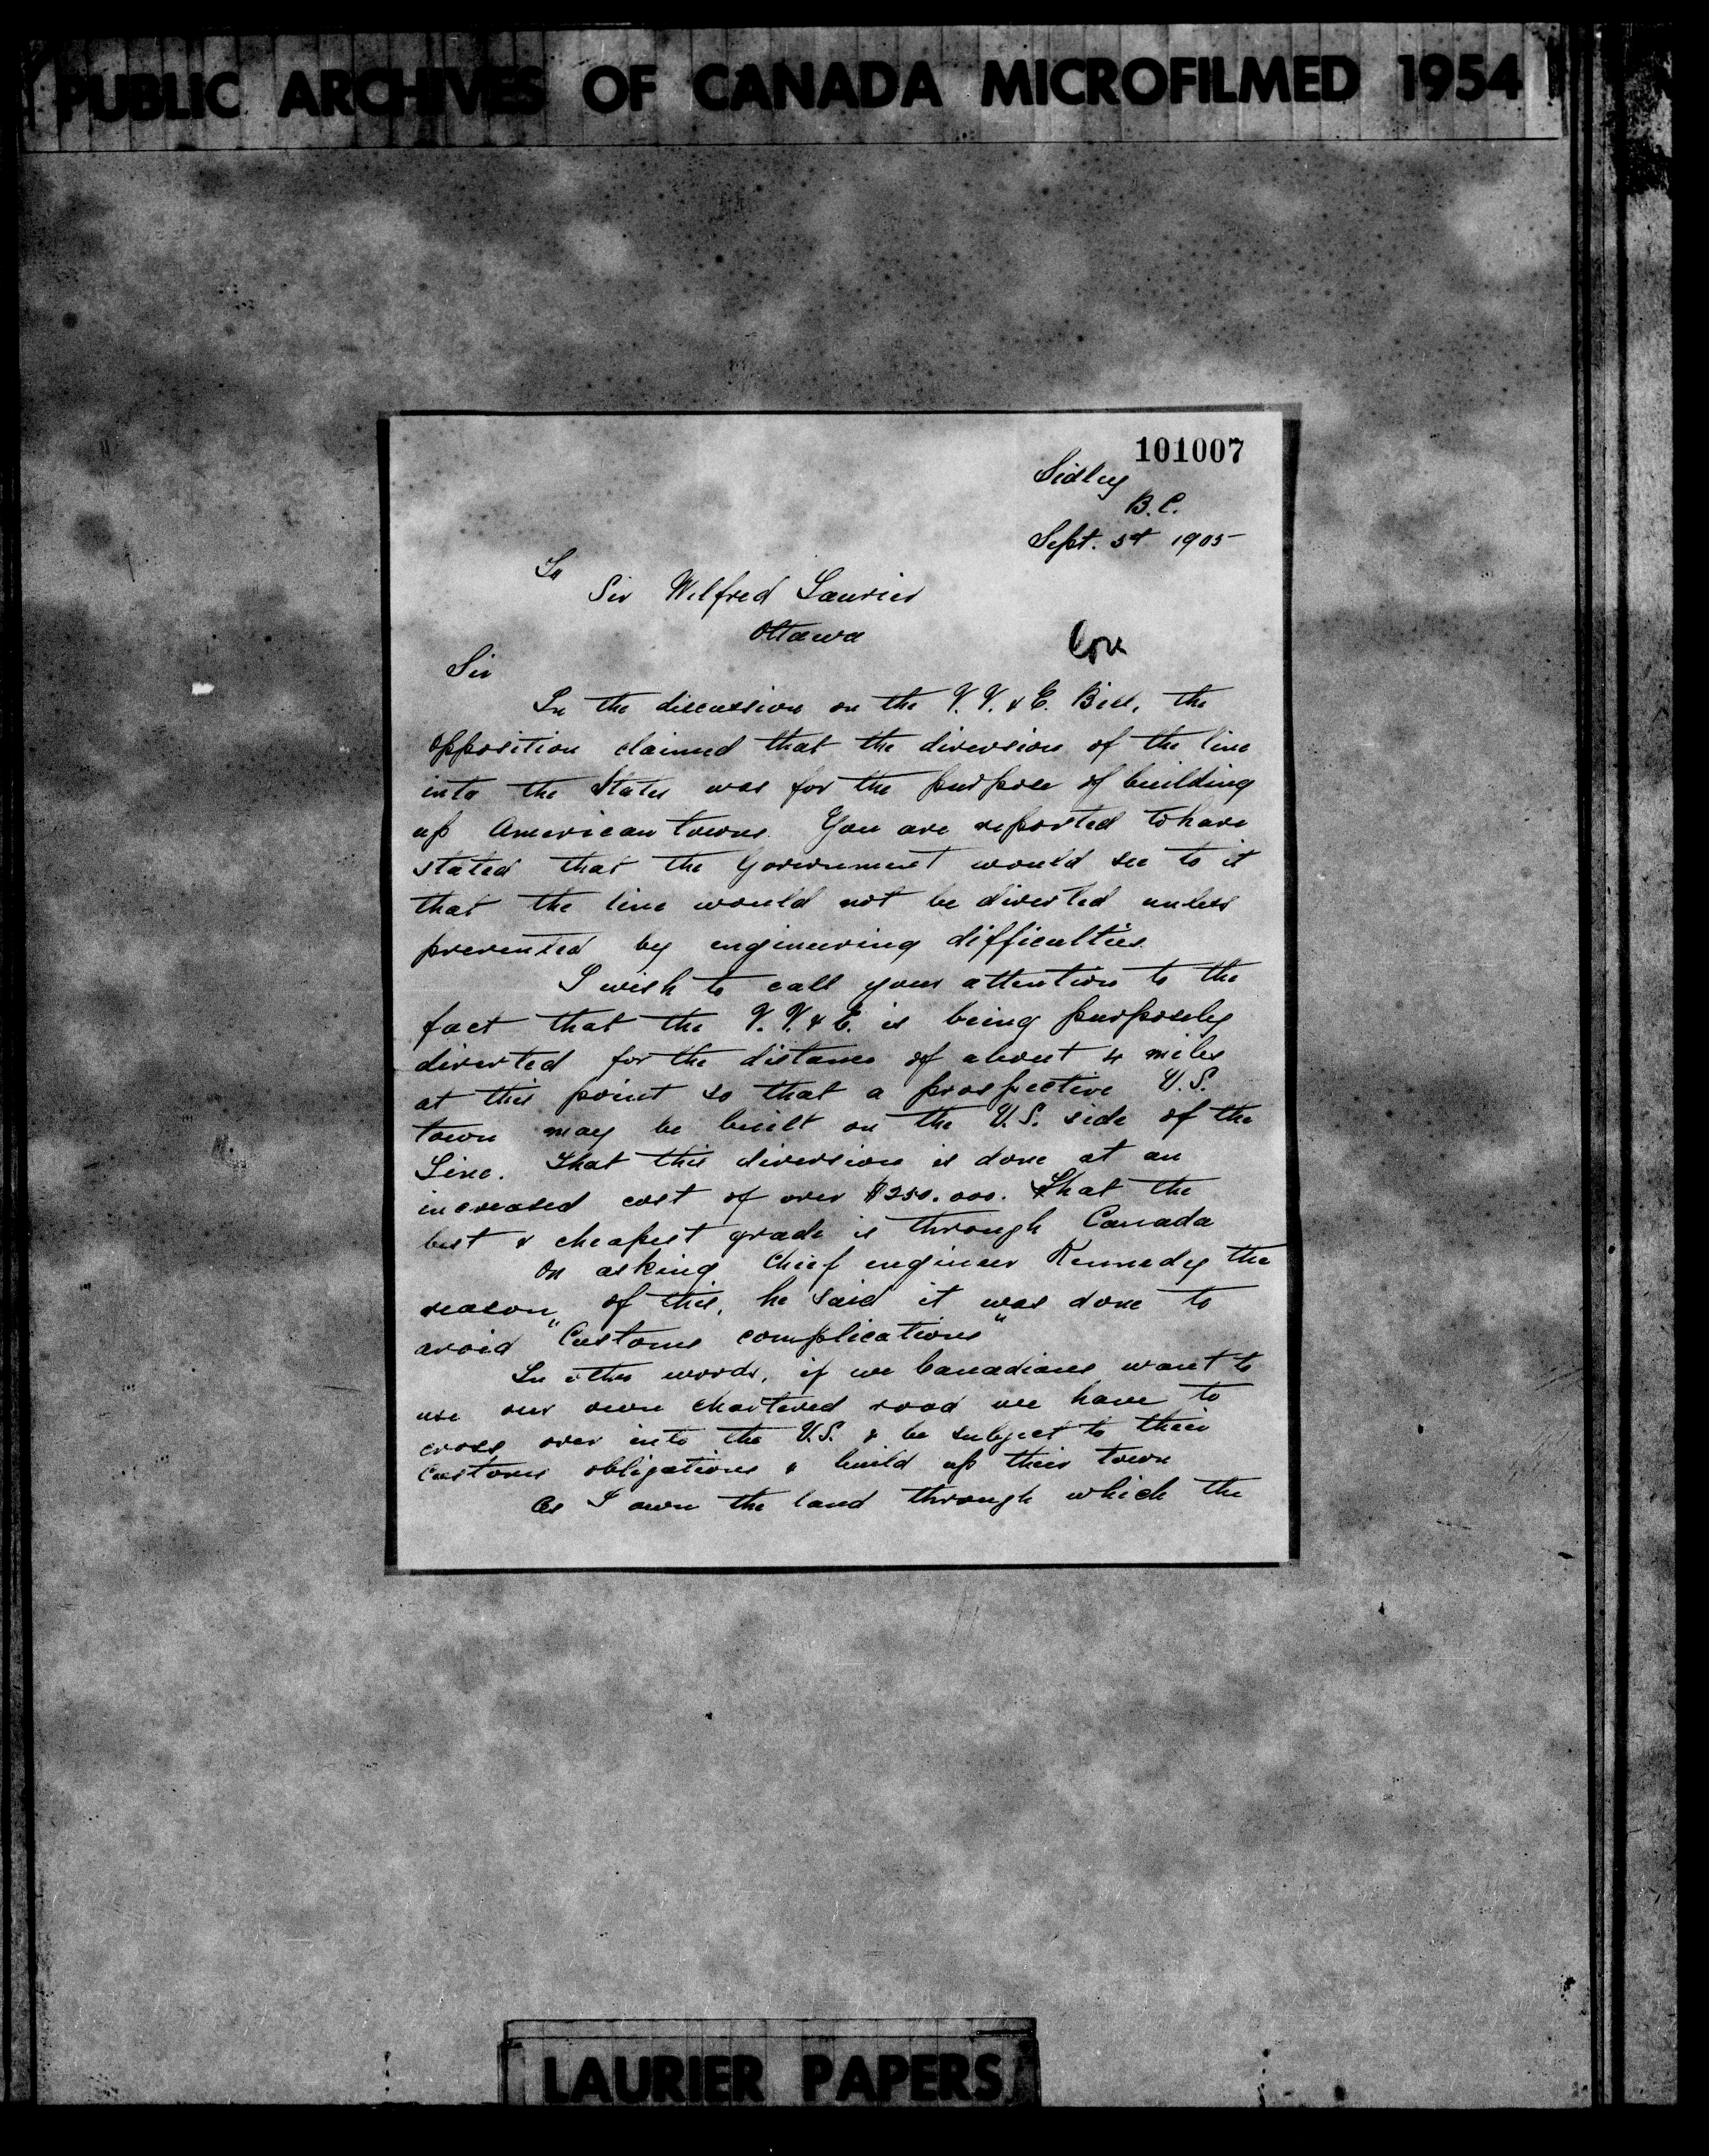 PUBLIC ARCHIVES OF CANADA MICROFILMED 1954
101007
Sidley
B.C.
Sept. 5th 1905
To
Sir Wilfred Laurier
Ottawa
Sir
In the discussion on the V.V. & E. Bill, the
opposition claimed that the diversion of the line
into the States was for the purpose of building
up American towns. You are reported to have
stated that the Government would see to it
that the line would not be diverted unless
prevented by engineering difficulties.
I wish to call your attention to the
fact that the V.V. & E. is being purposely
diverted for the distance of about 4 miles
at this point so that a prospective U.S.
town may be built on the U.S. side of the
Line. That this diversion is done at an
increased cost of over $250.000. That the
best & cheapest grade is through Canada
On asking Chief engineer Kennedy the
reason of this, he said it was done to
avoid "Customs complications"
In other words, if we Canadians want to
use our own chartered road we have to
cross over into the U.S. & be subject to their
Customs obligations & build up their town
As I own the land through which the
LAURIER PAPERS